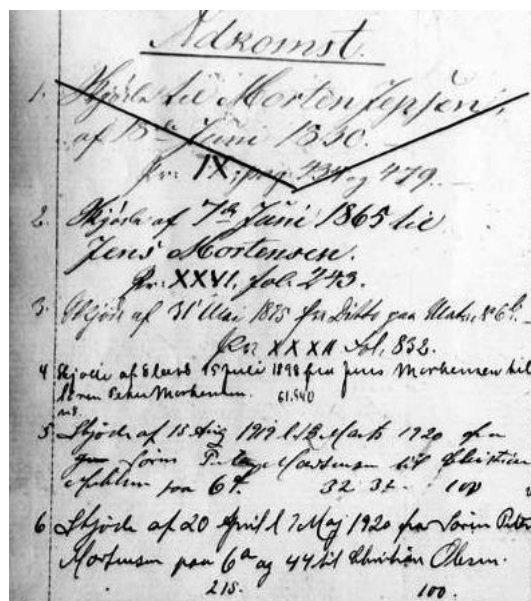 Adkomst.
1. Skjöde til Morten Jepsen,
af 18de Juni 1830.
Pr: IX, pag. 434 og 479.
2. Skjöde af 7de Juni 1865 til
Jens Mortensen.
Pr: XXVI. fol. 243.
3. Skjöde af 31 Mai 1875 fra Ditto paa Matr. No 6b.
Pr: XXXII Fol. 832.
4 Skjöde af 15 Juli 1898 fra Jens Mortensen til
Sören Peter Mortensen. 61.540
5 Skjöde af 15 Aug 1919 l. 18 Marts 1920 fra
Sören Peter Mortensen til Christian
paa 6f. 32 32 100
6 Skjöde af 20 April l 7 Maj 1920 fra Sören Peter
Mortensen paa 6a og 44 til Christian Olsen.
215. 100.